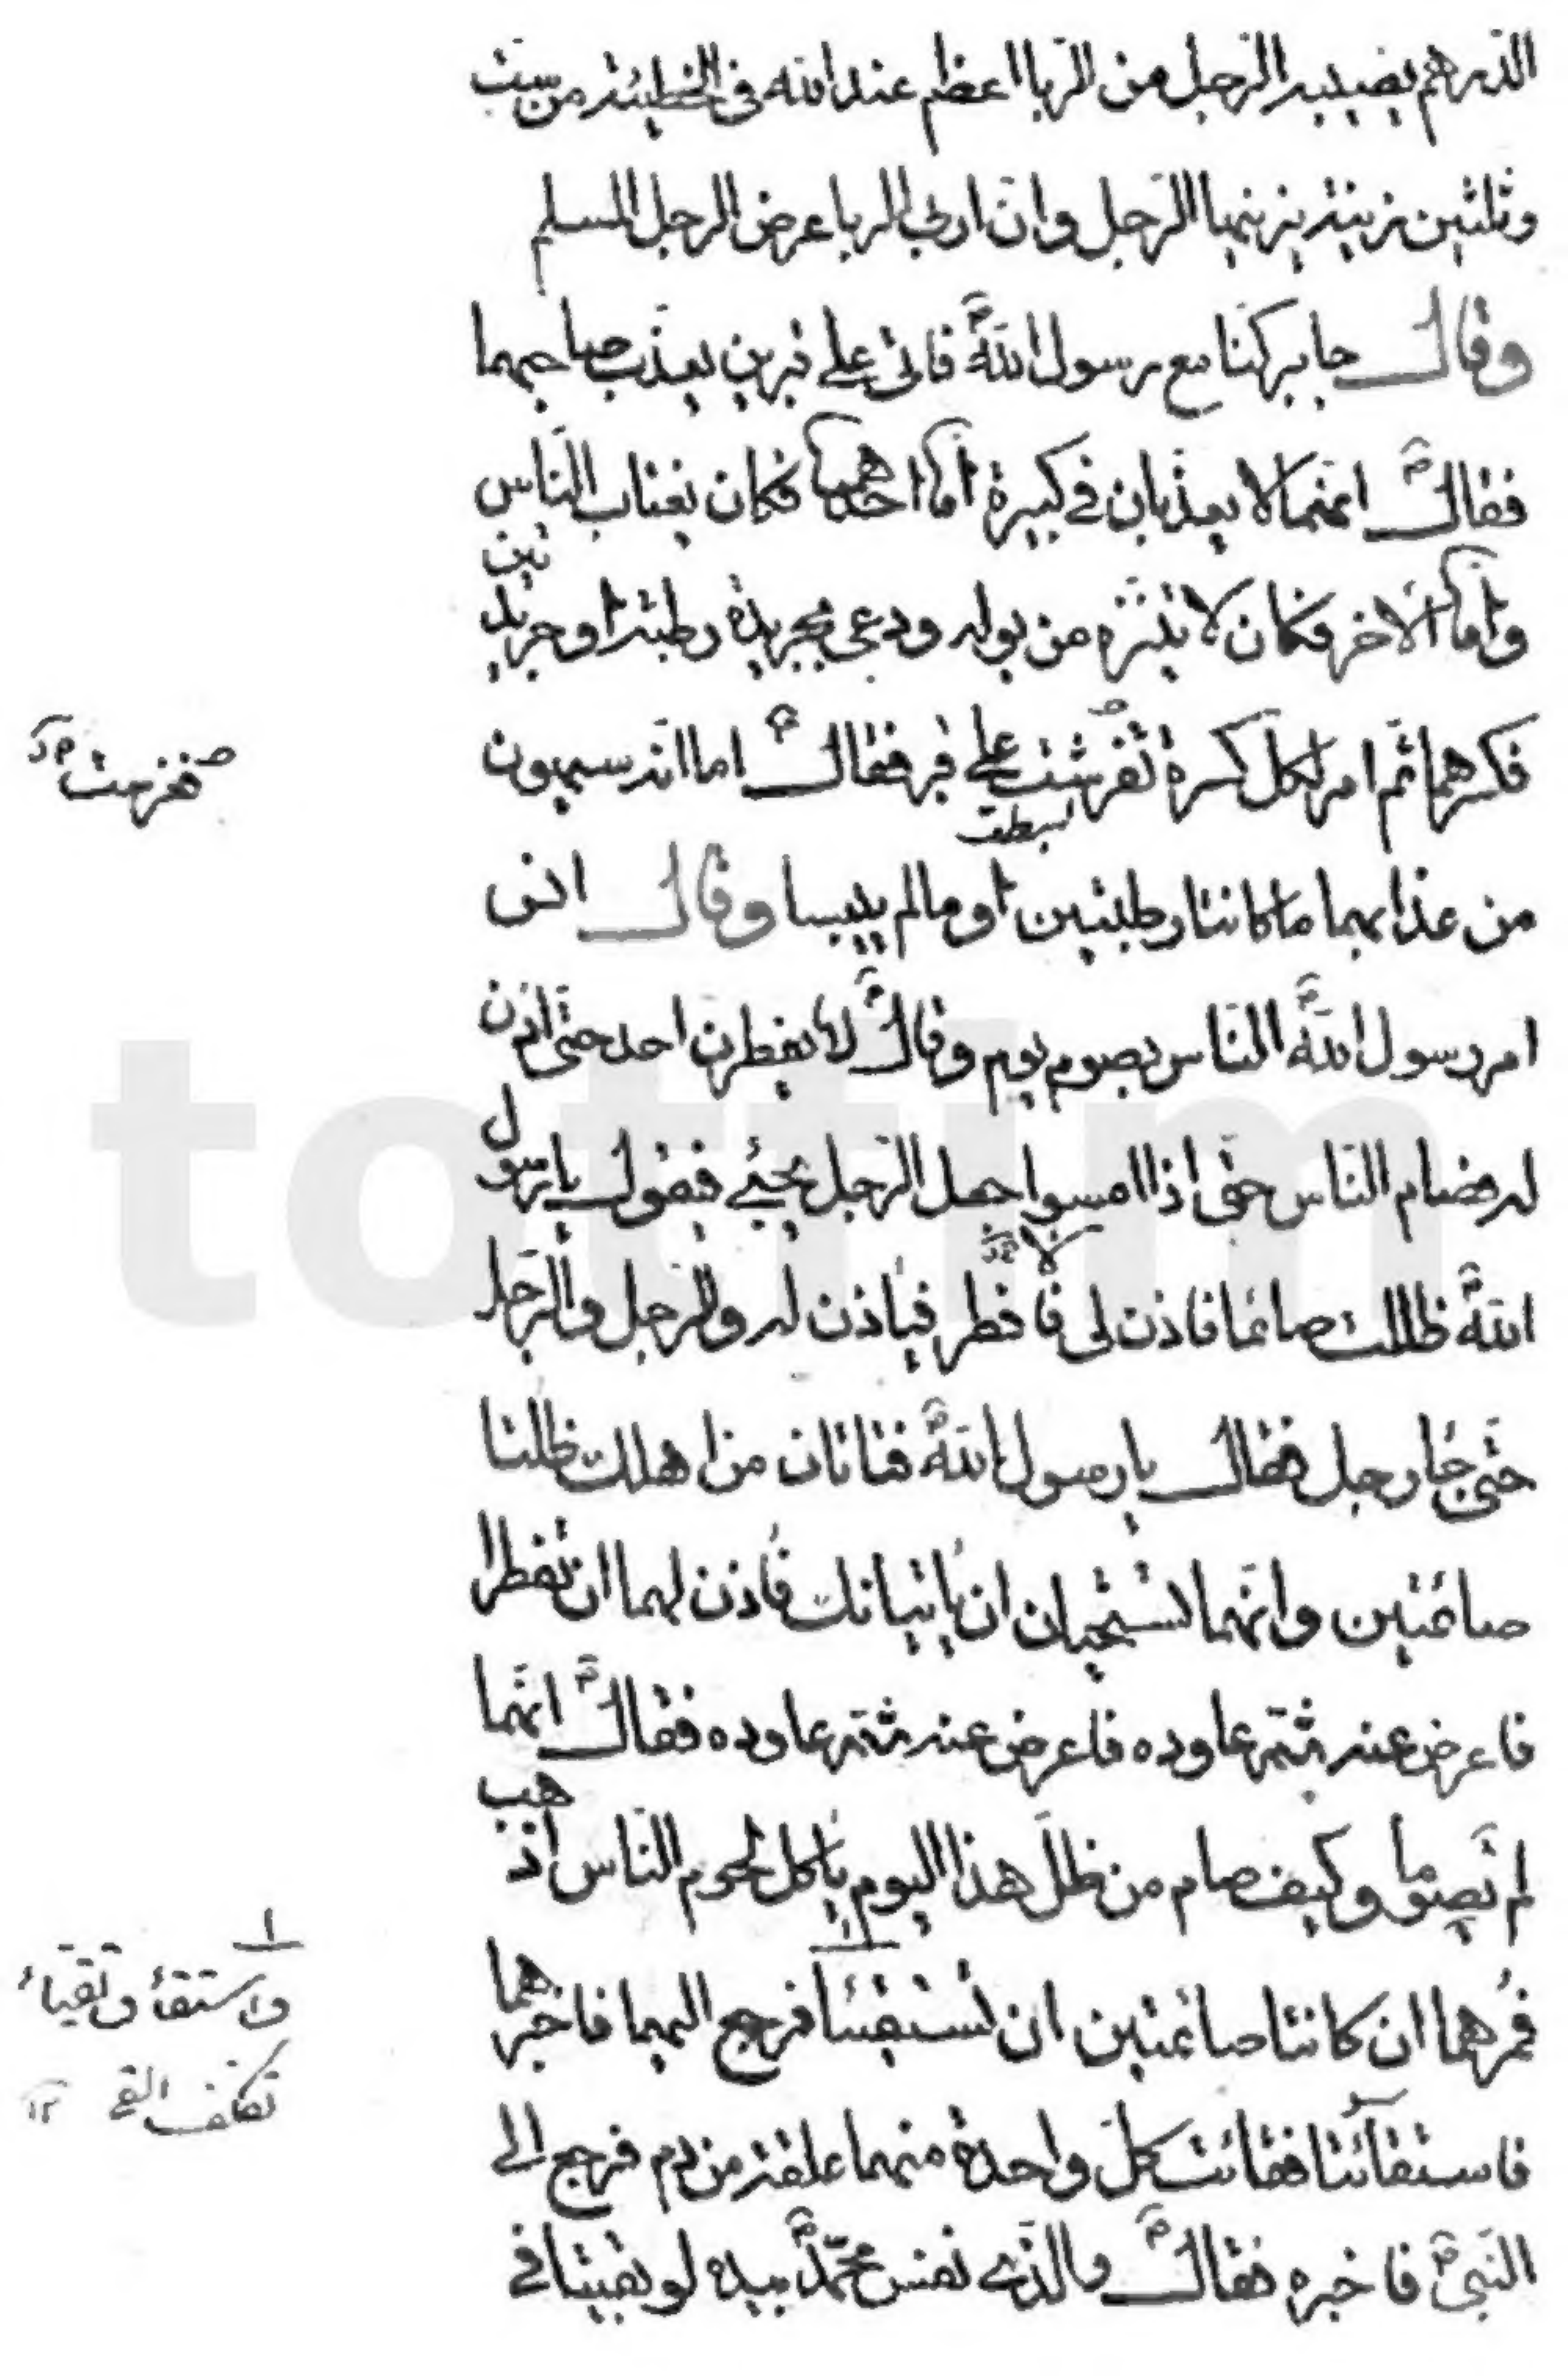 الدرهم يصيبه الرجل من الربا اعظم عند الله فى الخطيئة من ست
وثلثين زنية يزنيها الرجل وان اربى الربا عرض الرجل المسلم
وقال جابر كنا مع رسول الله فاتى على قبرين يعذب صاحبهما
فقال انهما لا يعذبان فى كبيرة اما احدهما فكان يغتاب الناس
واما الاخر فكان لا يتنزه من بوله ودعى بجريدة رطبة او جريدتين
فكسرهما ثم امر لكل كسرة تفرشت على قبر فقال اما انه سيهون
بسطت
من عذابهما ما كانتا رطبتين او ما لم ييبسا وقال انس
امر رسول الله الناس بصوم يوم وقال لا يفطرن احد حتى اذن
له فصام الناس حتى اذا امسوا جعل الرجل يجيئ فيقول يا رسول
الله ظللت صائما فاذن لى لافطر فياذن له والرجل والرجل
حتى جاء رجل فقال يا رسول الله فتاتان من اهلك ظلتا
صائمتين وانهما تستحيان ان ياتيانك فاذن لهما ان تفطرا
فاعرض عنه ثم عاوده فاعرض عنه ثم عاوده فقال انهما
لم تصوما وكيف صام من ظل هذا اليوم ياكل لحوم الناس اذهب
فمرهما ان كانتا صائمتين ان تستقيئا فرجع اليهما فاخبرهما
فاستقائتا فقائت كل واحدة منهما علقة من دم فرجع الى
النبى فاخبره فقال والذى نفس محمد بيده لو بقيتا فى
فغرست
واستقأ وتقيأ
تكلف القى ١٢